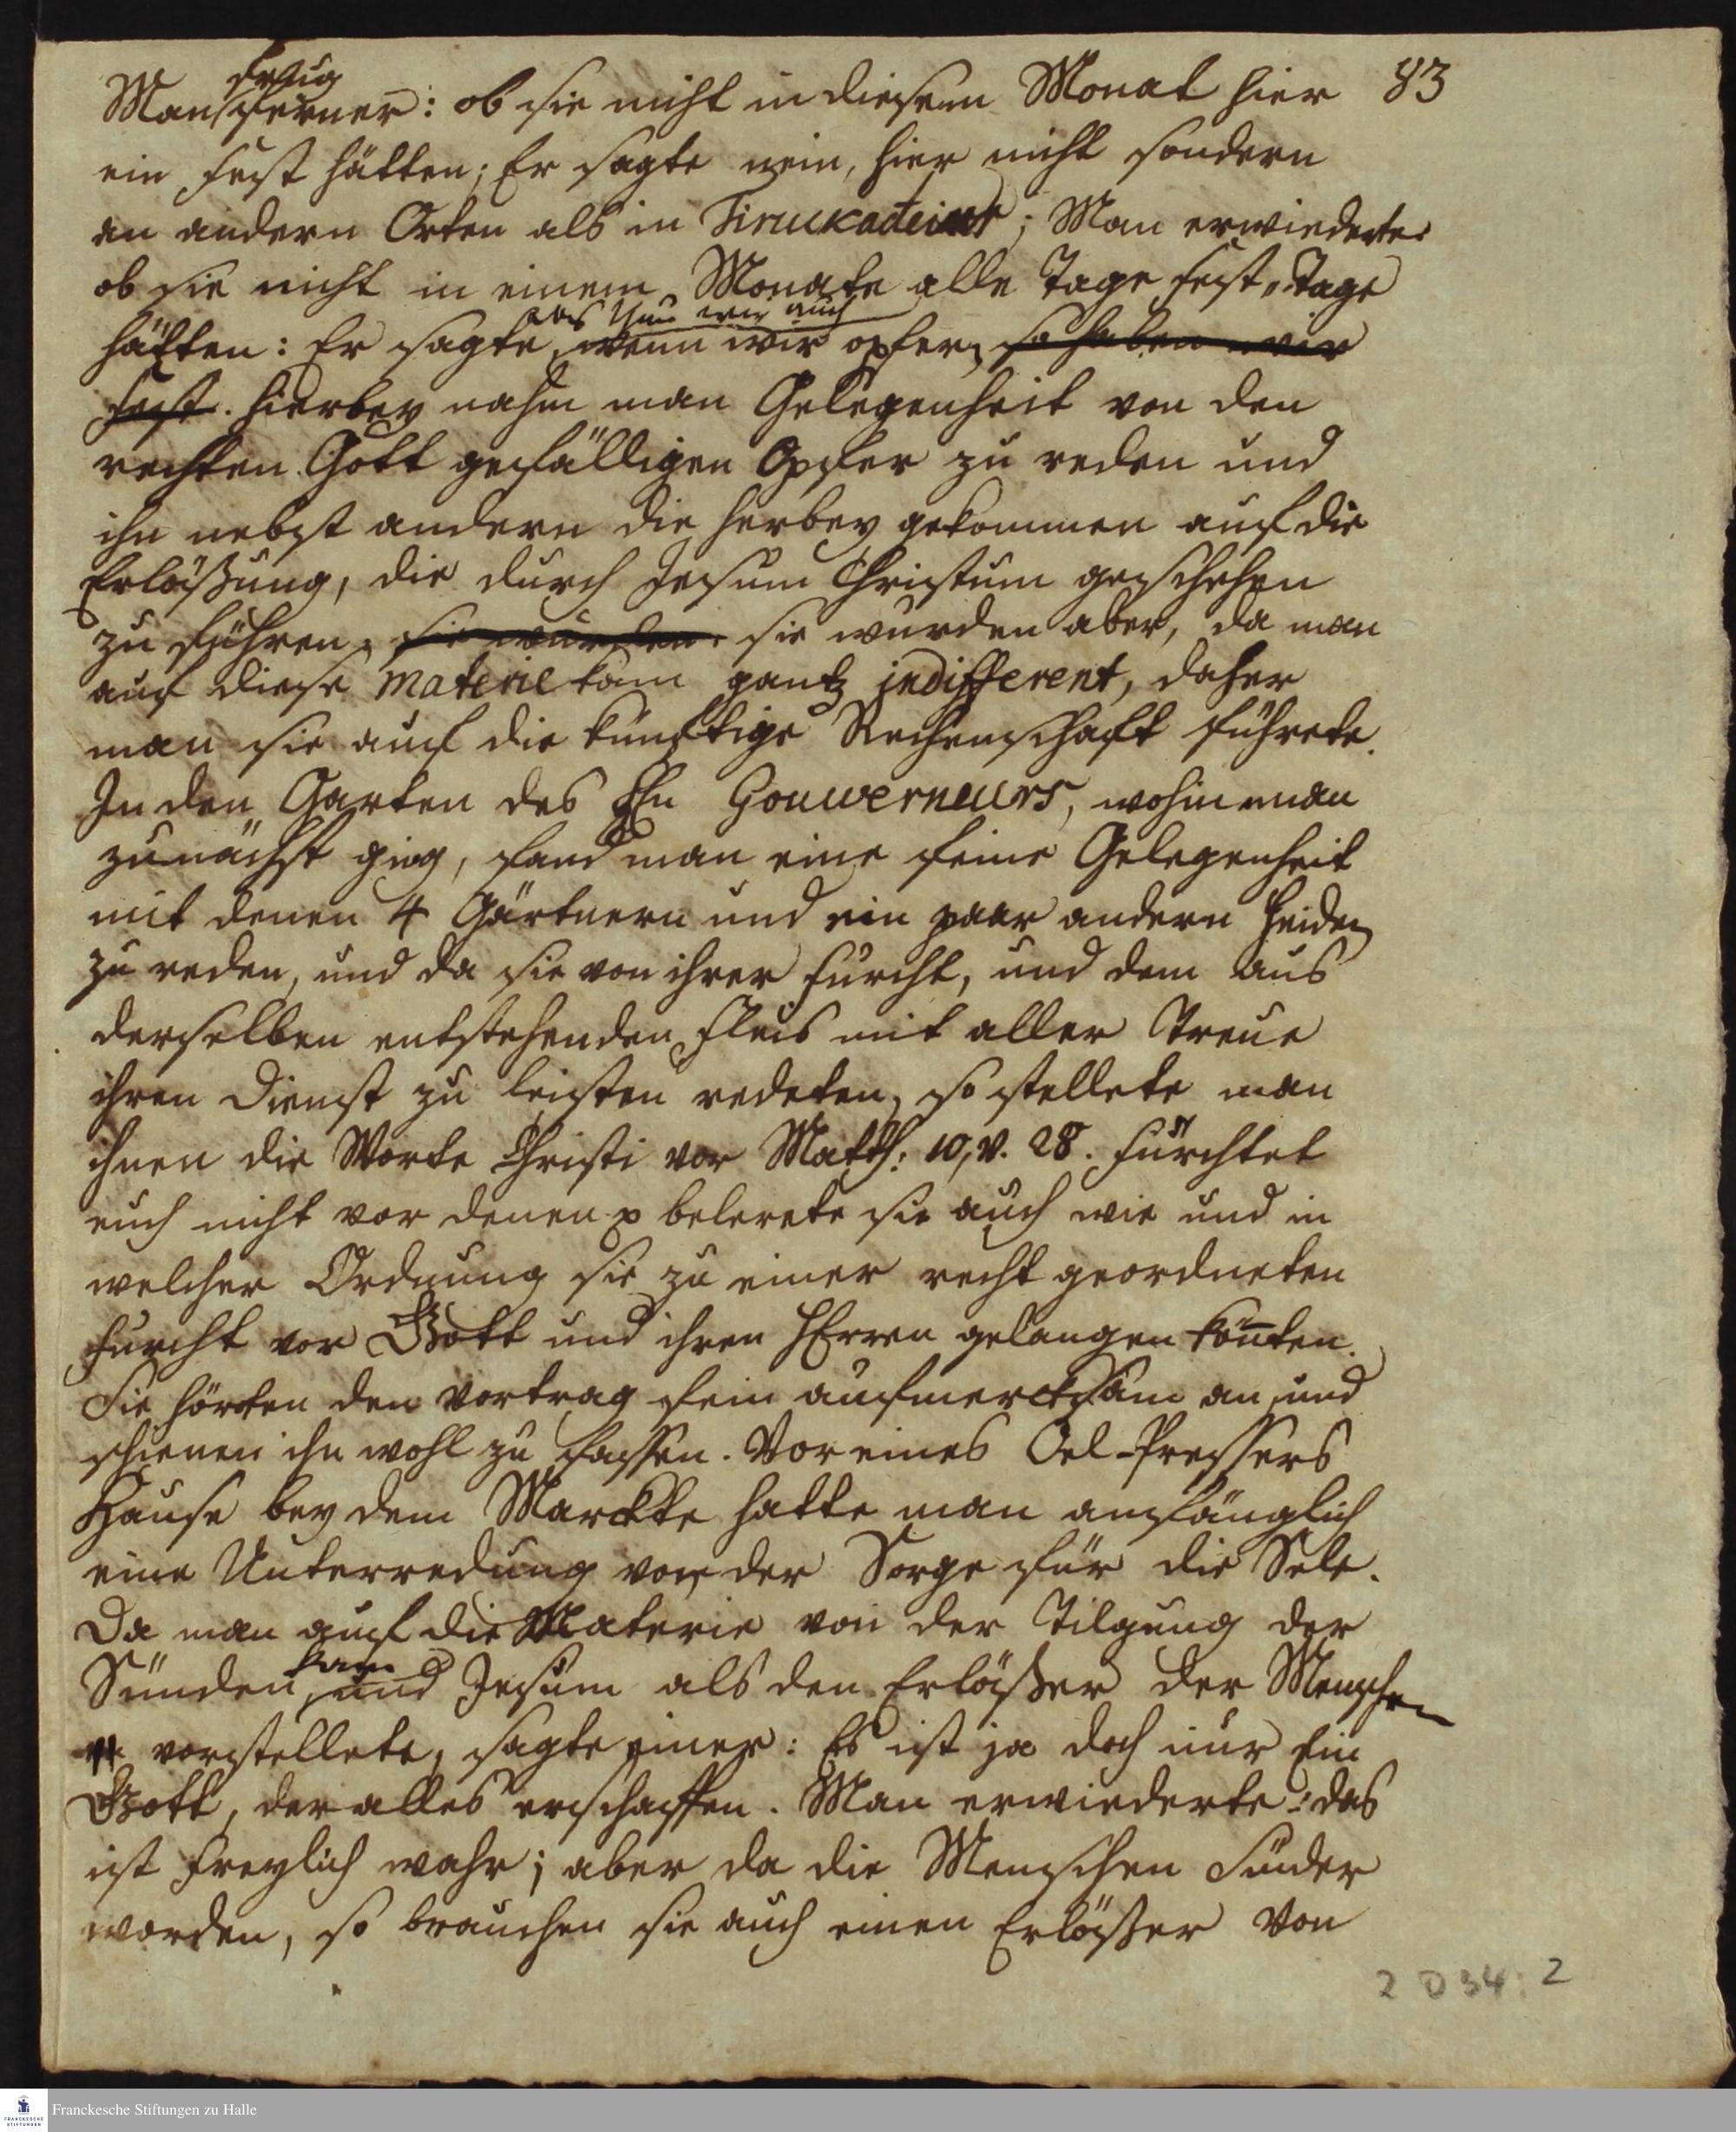 83
Man frug ferner: ob sie nicht in diesem Monat hier
ein Fest hätten; Er sagte nein, hier nicht sondern
an andern Orten als in Tiruckadeiur; Man erwiederte:
ob sie nicht in einem Monate alle Tage Fest-Tage
hätten: Er sagte, das thun wir auch wenn wir opfern, so haben wir
Fest. Hierbey nahm man Gelegenheit von den
rechten Gott gefälligen Opfer zu reden und
ihn nebst andern die herbey gekommen auf die
Erlößung, die durch Jesum Christum geschehen
zu führen, sie wurden. sie wurden aber, da man
auf diese materie kam gantz indifferent, daher
man sie auf die künftige Rechenschaft führete.
In den Garten des Hn Gouverneurs, wohin man
zunächst ging, fand man eine feine Gelegenheit
mit denen 4 Gärtnern und ein paar andern Heiden
zu reden, und da sie von ihrer Furcht, und dem aus
derselben entstehenden Fleis mit aller Treue
ihren Dienst zu leisten redeten, so stellete man
ihnen die Worte Christi vor Matth: 10, v. 28. Fürchtet
euch nicht vor denen p belerete sie auch wie und in
welcher Ordnung sie zu einer recht geordneten
Furcht vor Gott und ihren HErren gelangen könten.
Sie hörten den Vortrag fein aufmercksam an, und
schienen ihn wohl zu fassen. Vor eines Oel-Pressers
Hause bey dem Marckte hatte man anfänglich
eine Unterredung von der Sorge für die Sele.
Da man auf die Materie von der Tilgung der
Sünden kam und Jesum als den Erlößer der Menschen
vorstellete, sagte einer: Es ist ja doch nur Ein
Gott, der alles erschaffen. Man erwiederte: das
ist freylich wahr; aber da die Menschen Sünder
worden, so brauchen sie auch einen Erlößer von
2 D 34 : 2
Franckesche Stiftungen zu Halle
FRANCKESCHE
STIFTUNGEN